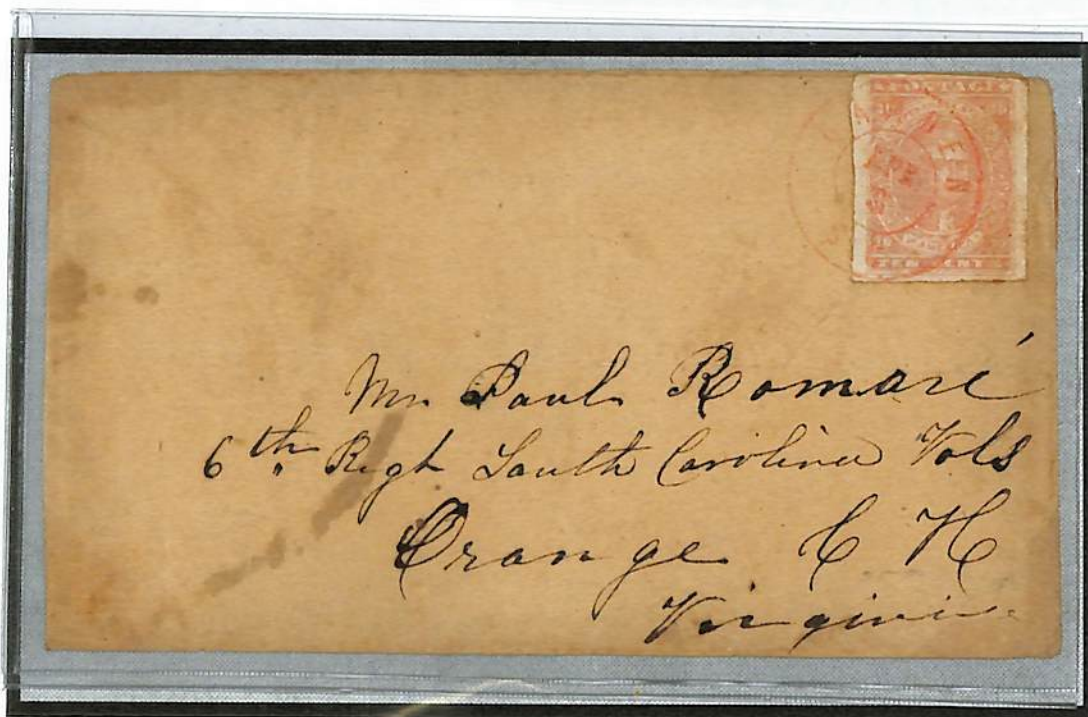 POSTAGE
10
TEN CENTS
Mr. Paul Romaré
6th Regt South Carolina Vols
Orange C H
Virginia